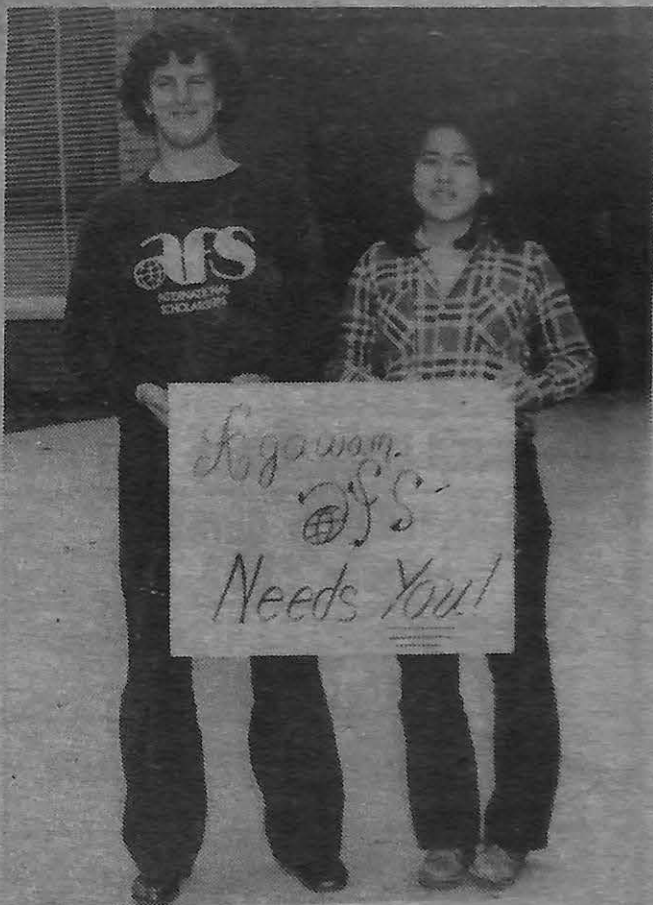 afs
INTERNATIONAL
SCHOLARSHIPS
Agawam
afs
Needs You!